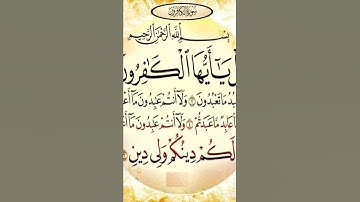 سُورَةُ الكَافِرُونَ
بِسْمِ ٱللَّهِ ٱلرَّحْمَٰنِ ٱلرَّحِيمِ
يَٰٓأَيُّهَا ٱلْكَٰفِرُونَ
مَا تَعْبُدُونَ ۝ وَلَآ أَنتُمْ عَٰبِدُونَ مَآ
عَابِدٌ مَّا عَبَدتُّمْ ۝ وَلَآ أَنتُمْ عَٰبِدُونَ مَآ
لَكُمْ دِينُكُمْ وَلِىَ دِينِ ۝